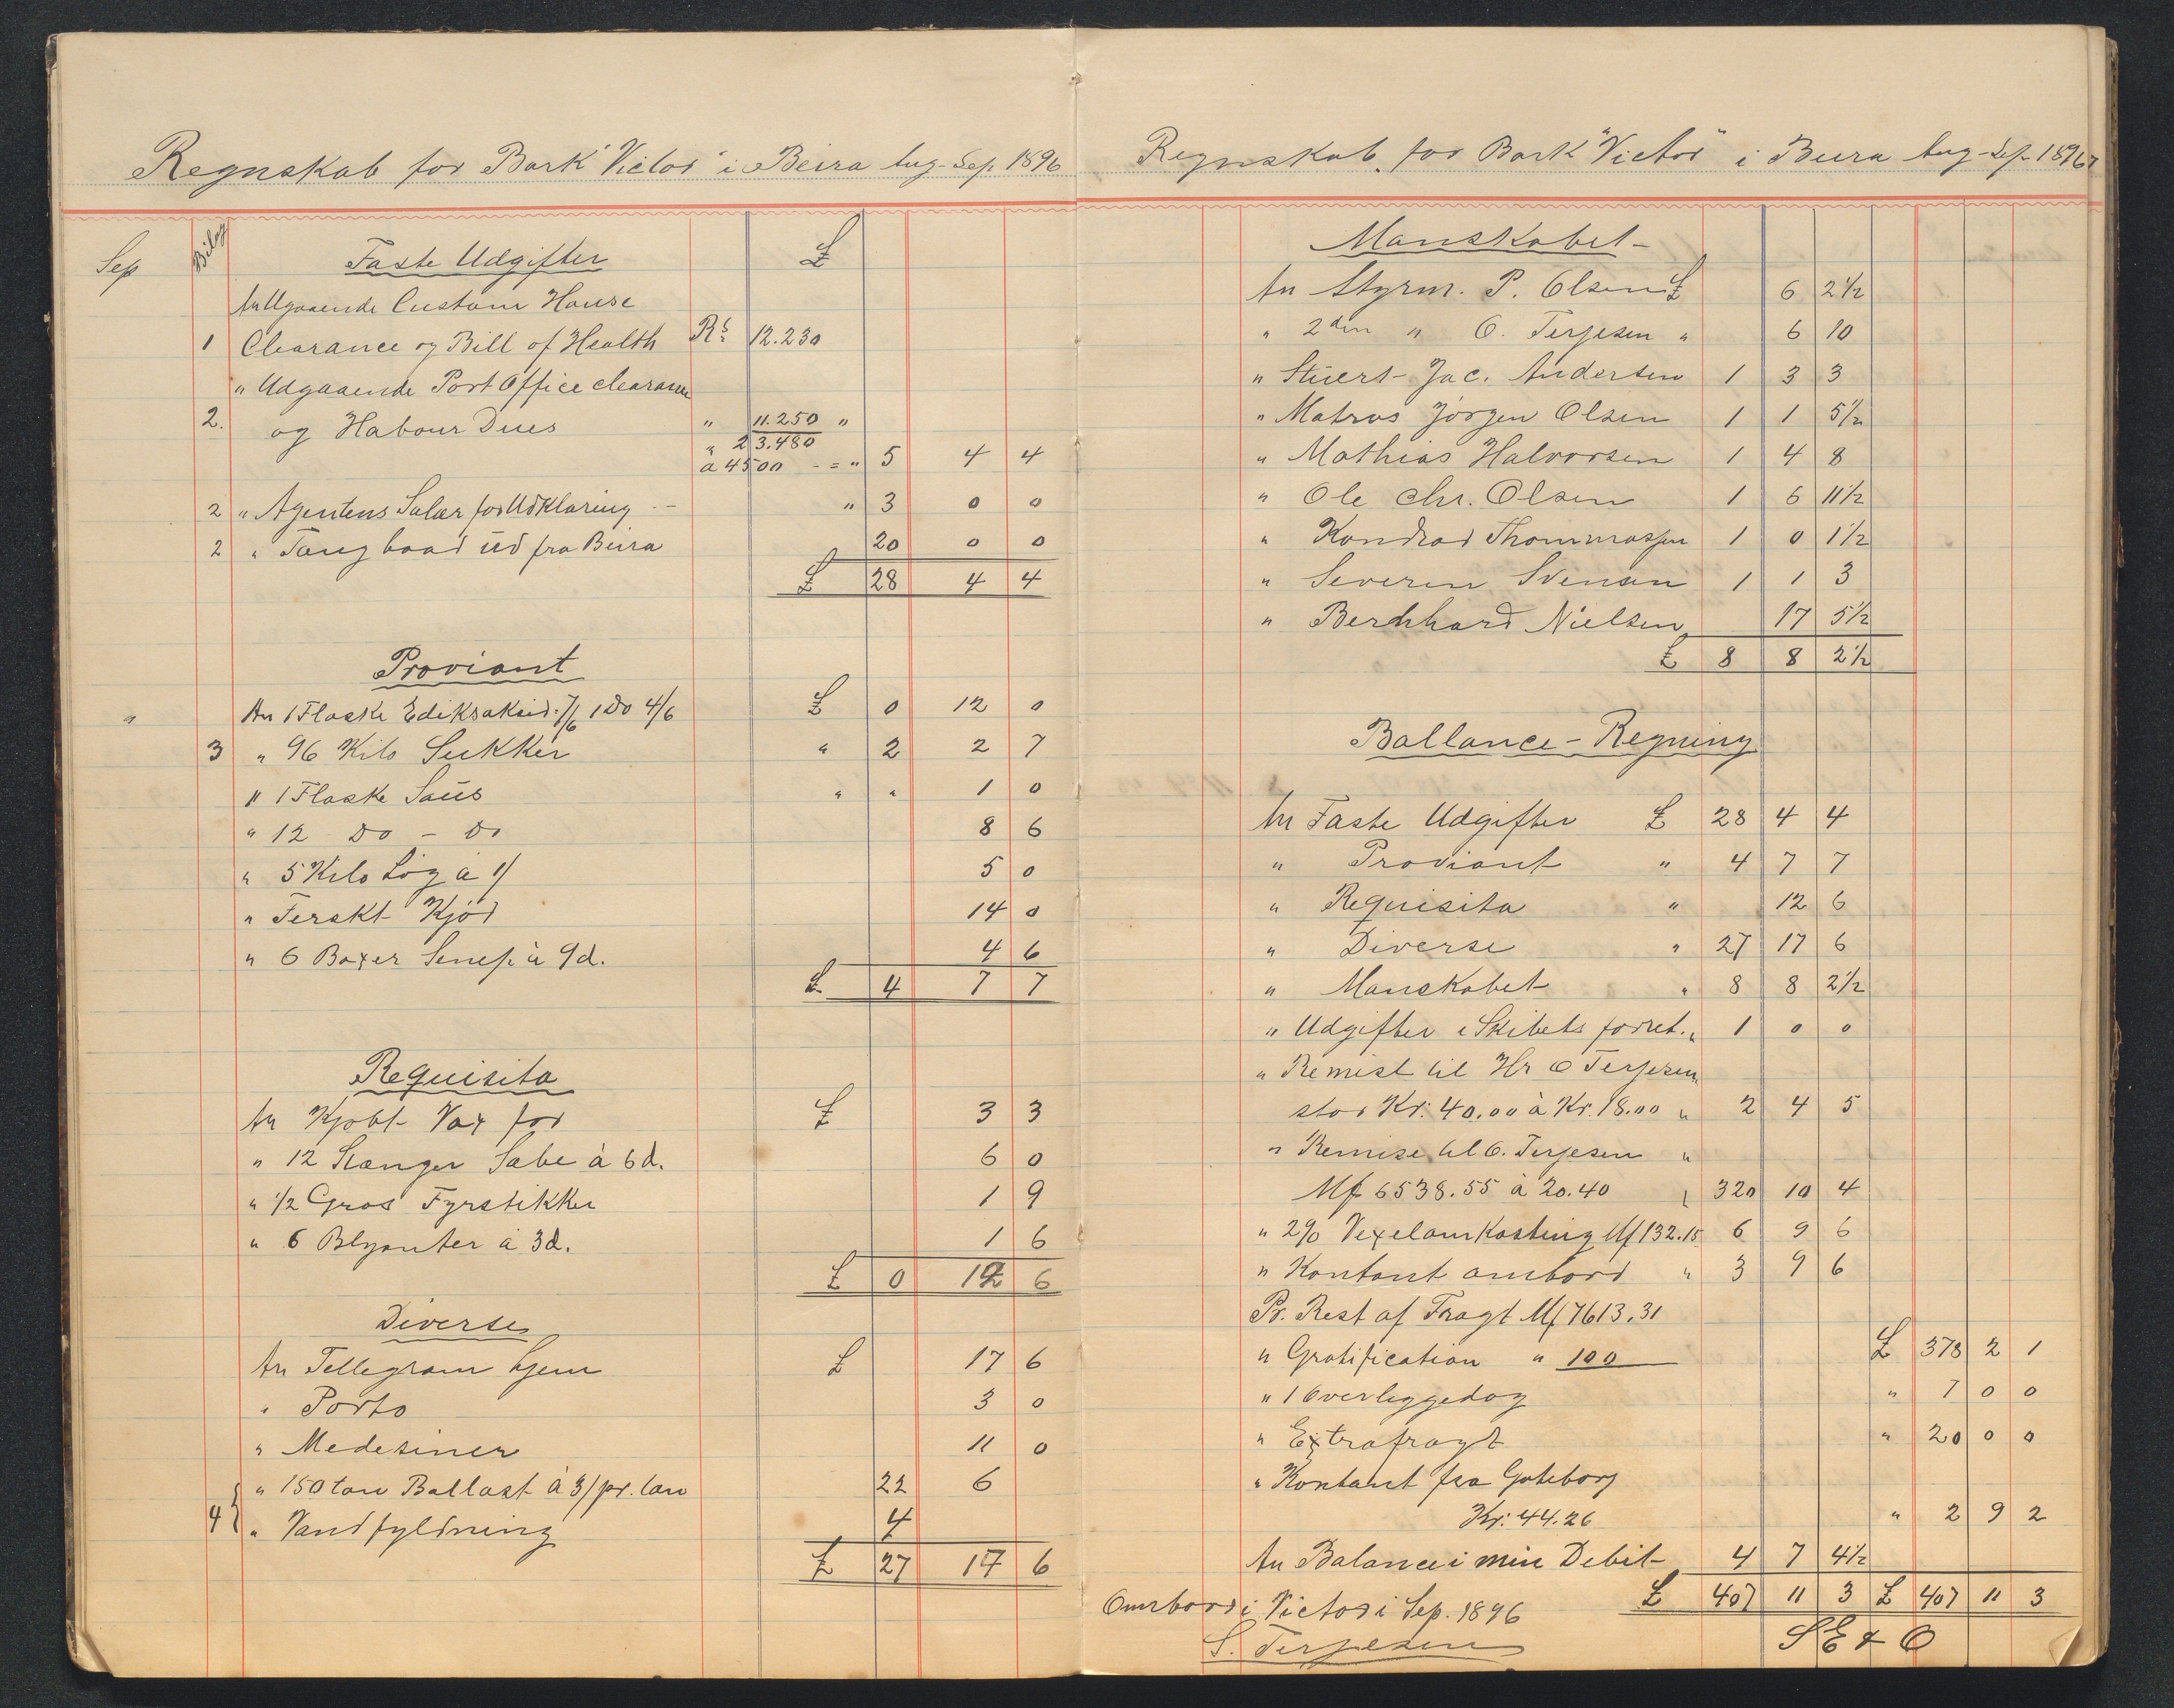 Regnskab for Bark "Victor" i Beira Aug-Sep 1896
Sep Bilag Faste Udgifter £
An Udgaaende Custom House
1 Clearance og Bill of Health Rs 12.230
" Udgaaende Port Office clearance
2. og Habour Dues " 11.250 "
" 23.480
a 4500 - = " 5 4 4
2 " Agentens Salær for Udklaring -- " 3 0 0
2 " Taug baad ud fra Beira 20 0 0
£ 28 4 4
Proviant
" An 1 Flaske Ediksaksid. 7/6 1 Do 4/6 £ 0 12 0
3 " 96 Kilo Sukker " 2 2 7
" 1 Flaske Saus " " 1 0
" 12 Do - Do 8 6
" 5 Kilo Løg a 1/ 5 0
" Ferskt Kjød 14 0
" 6 Boxer Senep à 9d. 4 6
£ 4 7 7
Requisita
An Kjøbt Vox for £ 3 3
" 12 Stænger Sæbe à 6d. 6 0
" 1/2 Gros Fyrstikker 1 9
" 6 Blyanter a 3d. 1 6
£ 0 12 6
Diverse
An Tellegram hjem £ 17 6
" Porto 3 0
" Medesiner 11 0
" 150 ton Ballast à 3/ pr. ton 22 6
4 " Vandfyldning 4
£ 27 17 6
Regnskab for Bark "Victor" i Beira Aug-Sep 1896
Manskabet
An Styrm. P. Olsen £ 6 2 1/2
" 2den " O. Terjesen " 6 10
" Stuert Jac. Andersen 1 3 3
" Matros Jørgen Olsen 1 1 5 1/2
" Mathias Halvorsen 1 4 8
" Ole Chr. Olsen 1 6 11 1/2
" Kondrad Thommassen 1 0 1 1/2
" Severin Svensen 1 1 3
" Bernhard Nielsen 17 5 1/2
£ 8 8 2 1/2
Ballance-Regning
An Faste Udgifter £ 28 4 4
" Proviant " 4 7 7
" Requisita " 12 6
" Diverse " 27 17 6
" Manskabet " 8 8 2 1/2
" Udgifter i Skibets forret. " 1 0 0
" Remist til Hr O Terjesen
stor Kr. 40.00 à Kr. 18.00 " 2 4 5
" Remise til O. Terjesen "
Mf 6538.55 a 20.40 " 320 10 4
" 2% Vexelomkostning Mf 132.15 6 9 6
" Kontant ombord " 3 9 6
Pr. Rest af Fragt Mf 7613.31
" Gratification " 100 £ 378 2 1
" 1 Overliggedag " 7 0 0
" Extrafragt " 20 0 0
" Kontant fra Gøteborg
Kr. 44.26 " 2 9 2
An Balance i min Debit 4 7 4 1/2
Ombord i Victor i Sep. 1896 £ 407 11 3 £ 407 11 3
S. Terjesen S E & O